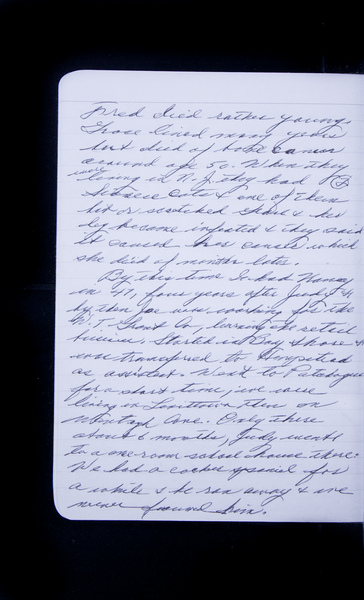 Fred died rather young.
Grace lived many years
but died of bone cancer
around age 50. When they
were
living in N.J. they had 2
Siamese cats & one of them
bit or scratched Grace & her
leg became infected & they said
it caused her cancer which
she died of months later.
By this time I had Nancy
in '47, four years after Judy &
by then Joe was working for the
W.T. Grant Co, learning the retail
business. Started in Bay Shore &
was transferred to Hempstead
as assistant. Went to Patchogue
for a short time; we were
living in Smithtown then on
Ave. Only there
about 6 months, Judy went
to a one room school house there.
We had a cocker spaniel for
a while & he ran away & we
never found him.